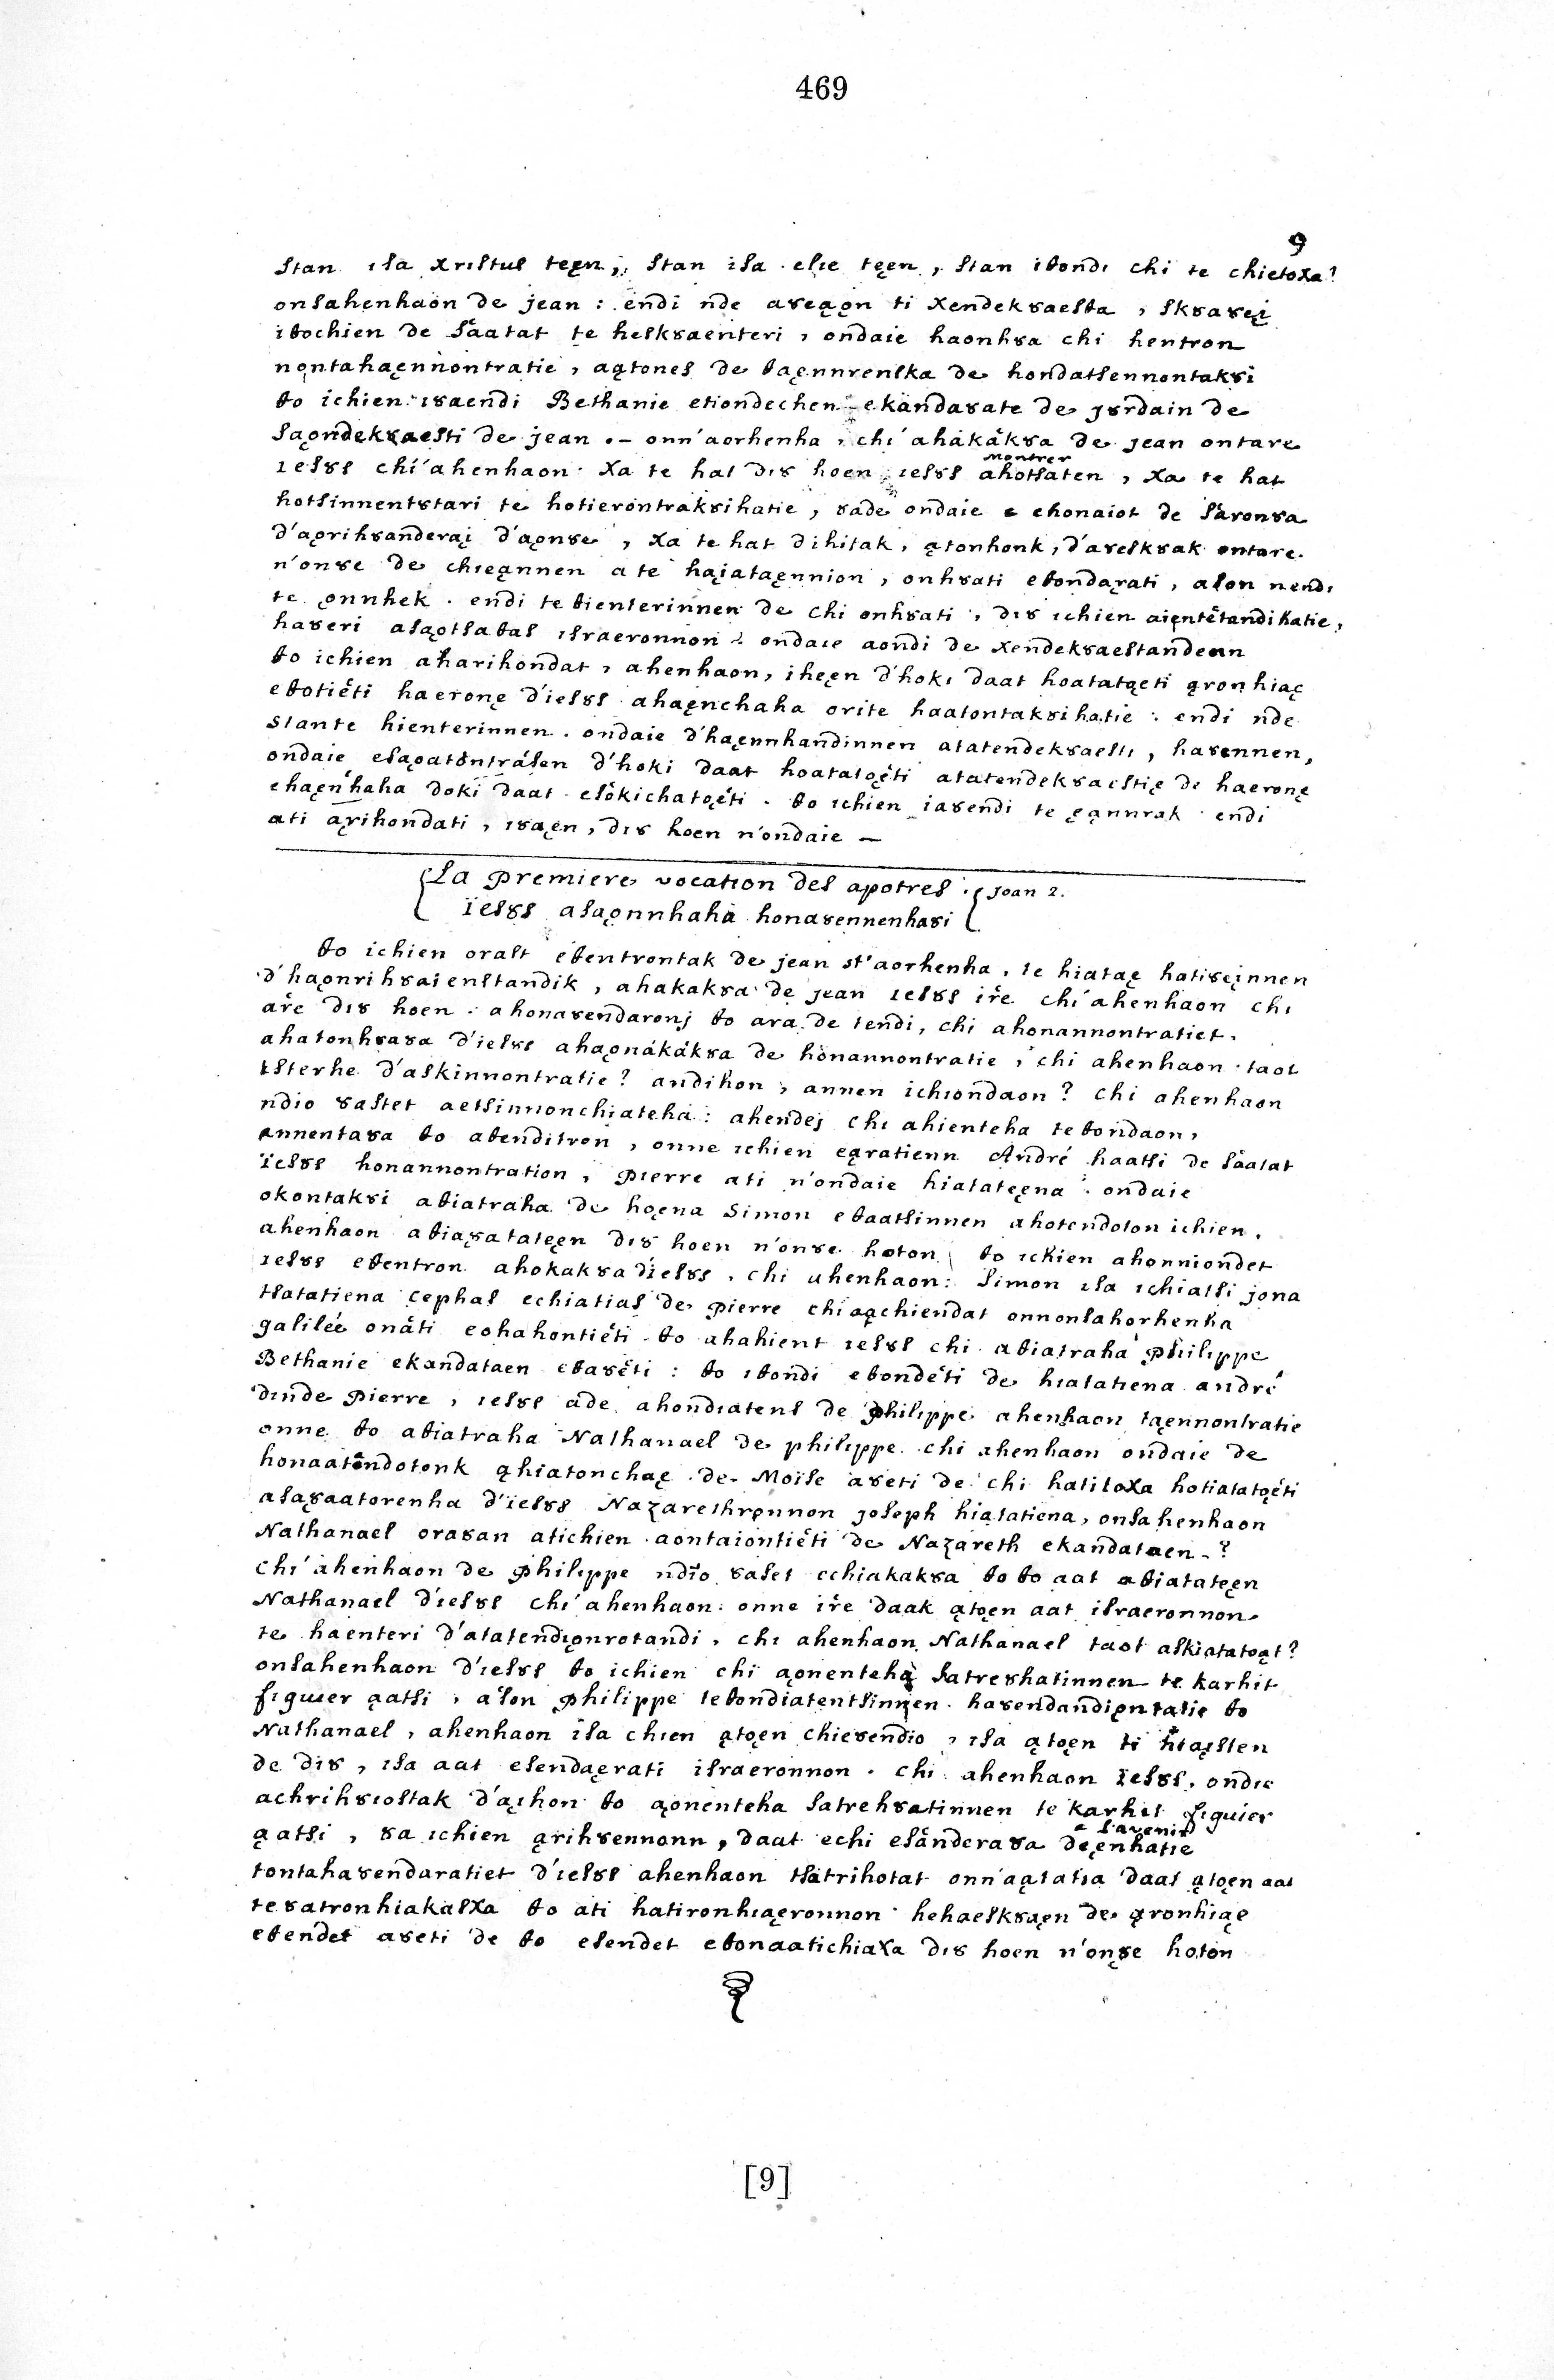 469
9
stan isa Xristus tȩen, stan isa elie tȩen, stan iθondi chi te chietoxa?
onsahenhaon de jean : endi nde aȣ̨eąǫn ti xendekȣaesta, skȣaȣȩį
iθochien de sä̀atat te heskȣaenteri, ondaie haonhȣa chi hentron
nǫntahaȩnnontratie, aątones de θaȩnnrenska de hondatsennontakȣi
θo ichien iȣaendi Bethanie etiondechen ekändaȣate de jȣrdain de
saǫndekȣaesti de jean . – onn'aorhenha, chi'ahakäkȣa de jean ontare
Montrer
iesȣs chi'ahenhaon xa te hat diȣ hoen iesȣs ahotsaten, xa te hat
hotsinnentȣtari te hotierontrakȣihatie, ȣade ondaie e ehonaiot de säronȣa
d'aǫrihȣanderaį d'aǫnȣe, xa te hat dihitak, ątonhonk, d'aȣeskȣak ontare
n'onȣe de chieąnnen a te hąiataȩnnion, onhȣ̣ati eθondaȓati, ason nendi
te ǫnnhek . endi te θienterinnen de chi onhȣ̣ati, diȣ ichien aiȩntëtandihatie,
haȣeri asaǫtsaθas israeronnon : ondaie aondi de xendekȣaestandenn
θo ichien aharihondat, ahenhaon, ihȩen d'hoki daat hoatatoȩti ąronhiaȩ
eθotiëti haeronȩ d'iesȣs ahaȩnchaha orite haatontakȣ̣ihatie : endi nde
stante hienterinnen . ondaie d'haȩnnhandinnen atatendekȣaesti, haȣennen,
ondaie esaǫatöntràsen d'hoki daat hoatatoȩ̈ti atatendekȣaestiȩ de haeronȩ
ehaȩn'haha doki daat esökichatoȩ̈ti . θo ichien iaȣendi te ȩąnnrak endi
ati ąrihondati, iȣaȩn, diȣ hoen n'ondaie –
La premiere vocation des apotres . Joan 2.
ïesȣs asaǫnnhaha honaȣ̣ennenhaȣ̣i
θo ichien orast eθentrontak de jean st'aorhenha, te hiataȩ hatiȣ̣eįnnen
d'haǫnrihȣaienstandik, ahakakȣa de jean iesȣs ire chi'ahenhaon chi
are diȣ hoen . ahonaȣendaronj θo ara de tendi, chi ahonannontratiet,
ahatonhȣaȣa d'iesȣs ahaǫnakäkȣa de hönannontratie, chi ahenhaon taot
isterhe d'askinnontratie? andihon, annen ichiondaon? chi ahenhaon
ndio ȣastet aetsinnonchiateha : ahendej chi ahienteha te θondaon,
annentaȣa θo aθenditron, onne ichien eąratienn André haatsi de säatat
ïesȣs honannontration, pierre ati n'ondaie hiatatȩena . ondaie
okontakȣi aθiatraha de hoȩna Simon eθaatsinnen ahotendoton ichien,
ahenhaon aθia̧ȣ̣atatȩen diȣ hoen n'onȣe hoton θo ichien ahonniondet
iesȣs eθentron ahokakȣa d'iesȣs, chi ahenhaon: Simon isa ichiatsi jona
tsatatiena cephas echiatias de pierre chiaąchiendat onnonsahorhenha
galileé onäti eohahontiëti θo ahahient iesȣs chi aθiatraha philippe
Bethanie ekandataen eθaȣëti : θo iθondi eθondëti de hiatatiena andré
dinde pierre, iesȣs ade ahondiatens de philippe ahenhaon taȩnnontratie
onne θo aθiatraha Nathanael de philippe chi ahenhaon ondaie de
honaatëndotonk ąhiatonchaȩ de Moïse aȣeti de chi hatitoxa hotiatatoȩ̈ti
asaȣ̨aatorenha d'iesȣs Nazarethrǫnnon joseph hiatatiena, onsahenhaon
Nathanael oraȣan atichien aontaiontiëti de Nazareth ekandataen – ?
chi'ahenhaon de philippe ndio ȣaset echiakakȣa θo θo aat aθiatatȩen
Nathanael d'iesȣs chi'ahenhaon : onne ire daak ątoȩn aat israeronnon
te haenteri d'atatendiǫnrotandi, chi ahenhaon Nathanael taot askiatatoąt?
onsahenhaon d'iesȣs θo ichien chi aǫnenteha satreȣhatinnen te karhit
figuier ąatsi, ason philippe teθondiatentsinnen haȣendandiǫntatie θo
Nathanael, ahenhaon isa chien ątoȩn chieȣendio, isa ątoȩn ti hiaȩsten
de diȣ, isa aat esendaȩrati israeronnon . chi ahenhaon ïesȣs, ondie
achrihȣiostak d'aįhon θo aǫnenteha satrehȣatinnen te karhit figuier
a l'avenir
ąatsi, ȣa ichien ąrihȣennonn, daat echi esänderaȣa deȩnhatie
tontahaȣendaratiet d'iesȣs ahenhaon tsitrihotat onn'aątatia daat ątoȩn aat
te ȣatronhiakasxa θo ati hatironhiaȩronnon hehaeskȣaȩn de ąronhiaȩ
eθendet aȣeti de θo esendet eθonaatichiaxa diȣ hoen n'on̨ȣe hoton
[9]